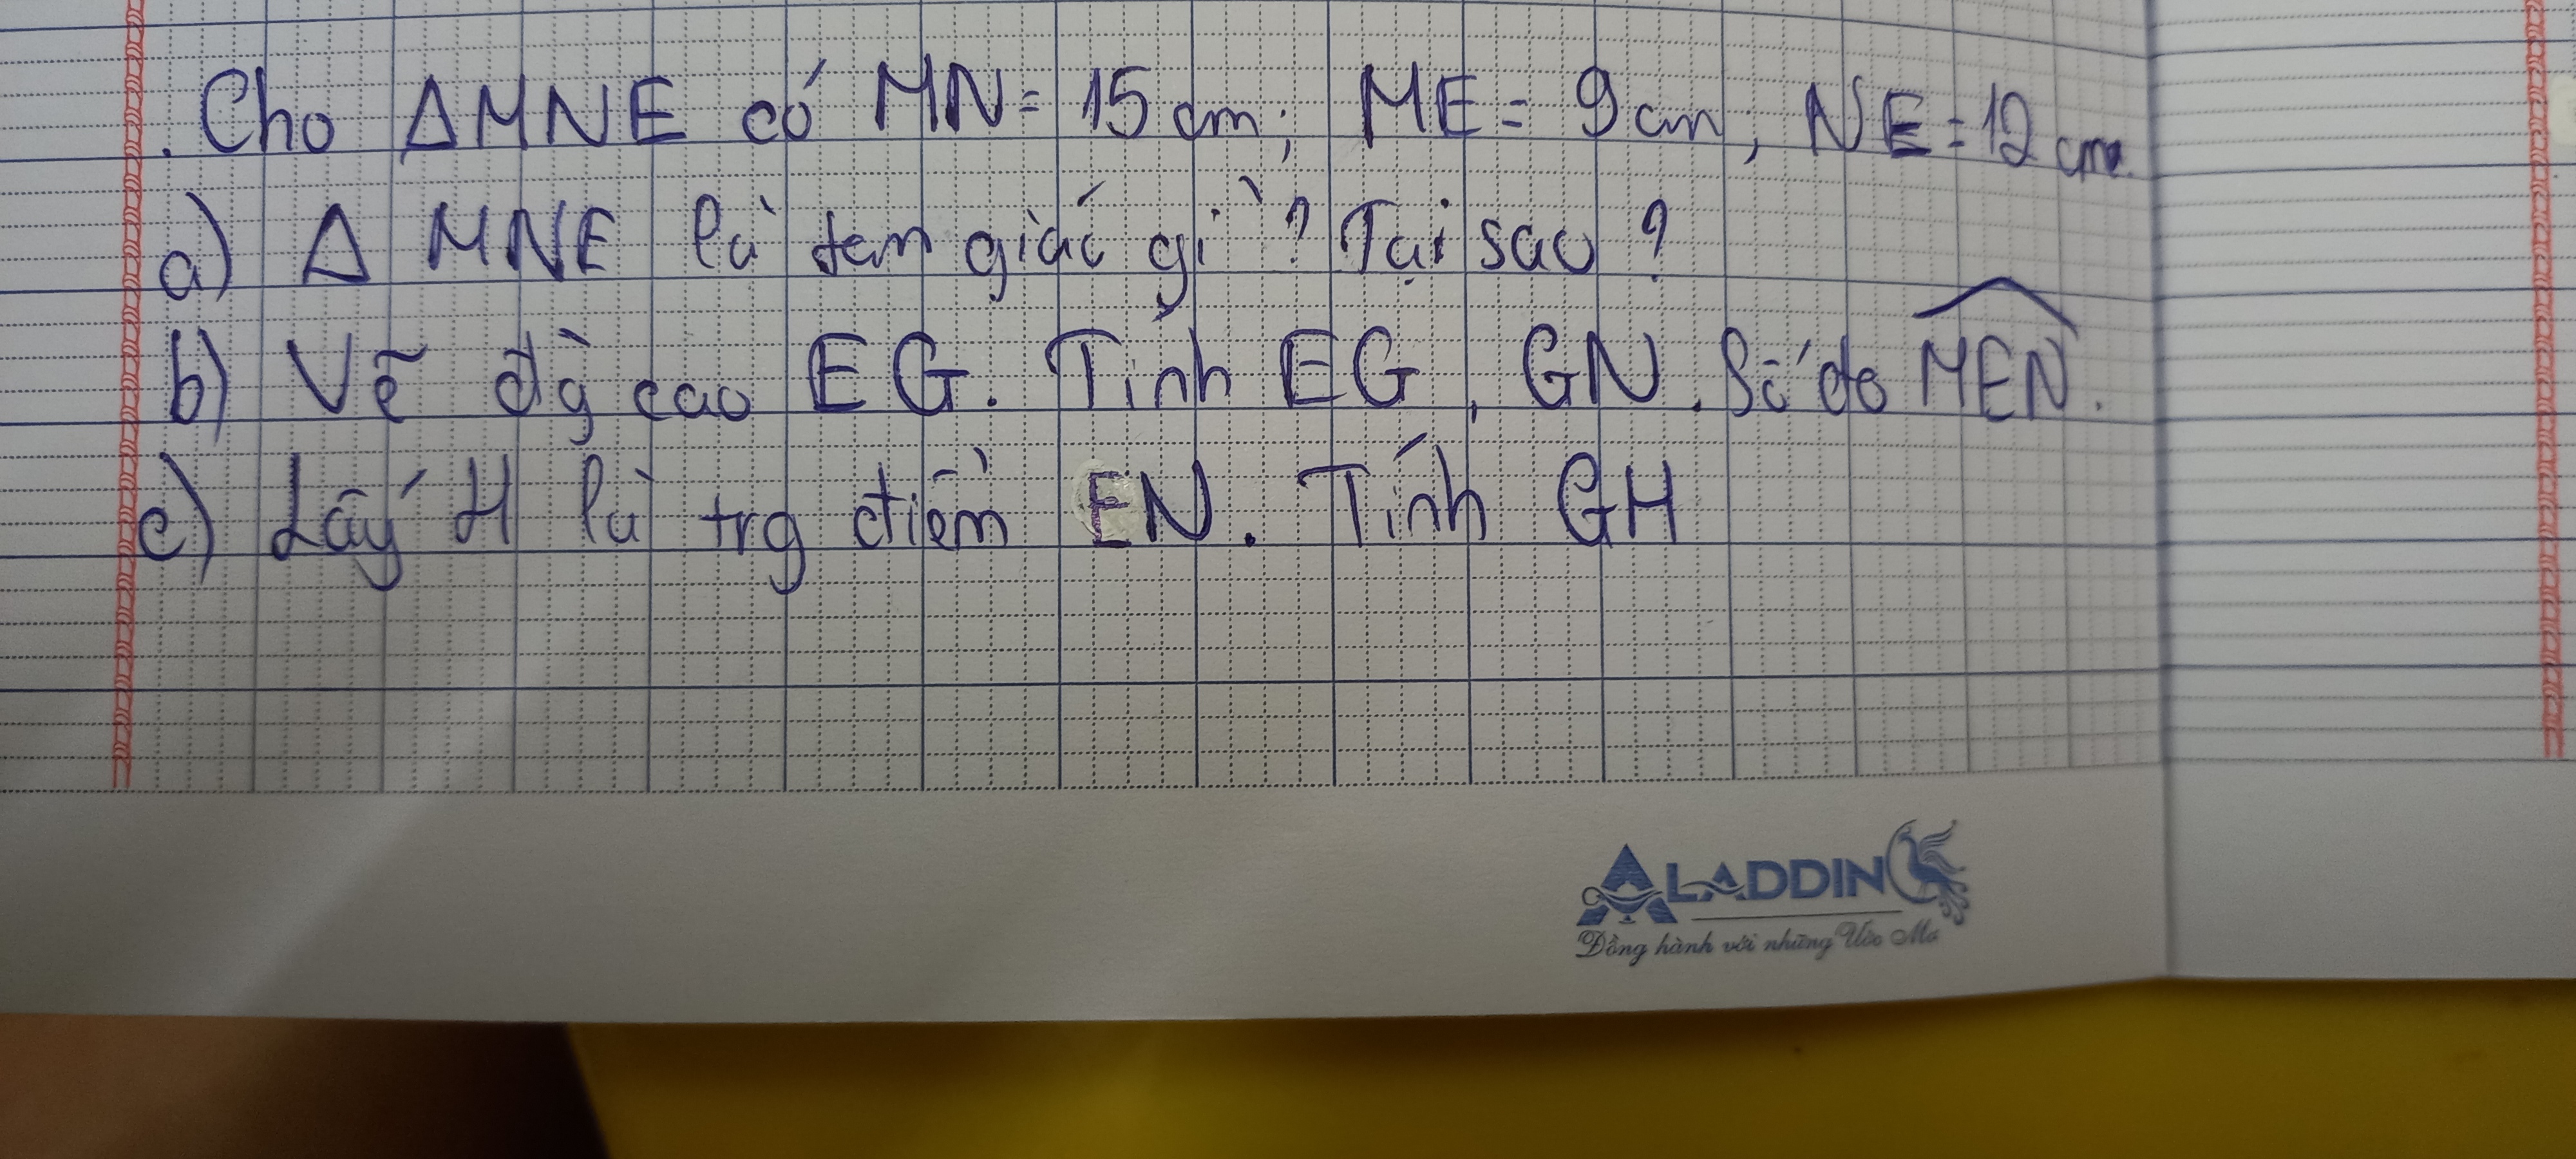 . Cho ΔMNE có MN = 15 cm; ME = 9 cm, NE = 12 cm.
a) Δ MNE là tam giác gì? Tại sao?
b) Vẽ đg cao EG. Tính EG, GN. Số đo \widehat{MEN}.
c) Lấy H là trg điểm EN. Tính GH
ALADDIN
Đồng hành với những Ước Mơ